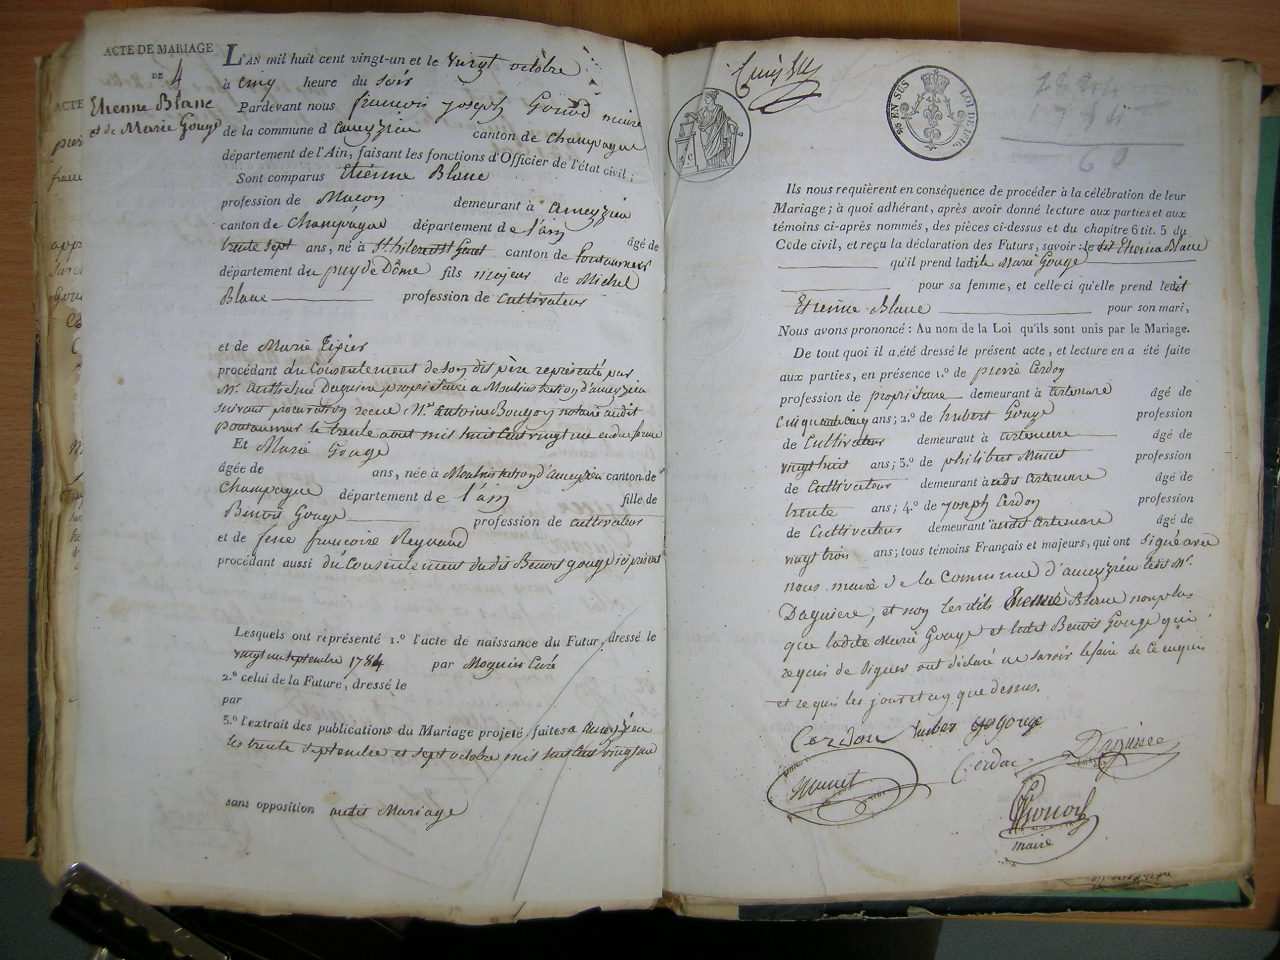 ACTE DE MARIAGE
DE 4
Etienne Blanc
et de Marie Gouge
L'AN mil huit cent vingt-un et le vingt octobre
à cinq heure du soir
Pardevant nous francois joseph Gonod maire
de la commune d'ameyzieu canton de Champagne
département de l'Ain, faisant les fonctions d'Officier de l'état civil;
Sont comparus Etienne Blanc
profession de Maçon demeurant à ameyzieu
canton de Champagne département de l'ain âgé de
trente sept ans, né à canton de
département du puy de Dôme fils majeur de Michel
Blanc profession de Cultivateur
et de Marie Tixier
procédant du Consentement de son dit père représenté par
Mr. Anthelme Daguiere propriétaire a Moulins hation d'ameyzieu
suivant procuration recue Mr. Antoine notaire audit
le trente aout mil huit Cent vingt un en due forme
Et Marie Gouge
âgée de ans, née à Moulins hation d'ameyzieu canton de
Champagne département de l'ain fille de
Benoit Gouge profession de cultivateur
et de feue francoise Reynaud
procédant aussi du Consentement dudit Benoit gouge ici présent
Lesquels ont représenté 1.º l'acte de naissance du Futur, dressé le
vingt un septembre 1784 par Moguin Curé
2.º celui de la Future, dressé le
par
3.º l'extrait des publications du Mariage projeté, faites a ameyzieu
les trente septembre et sept octobre mil huit Cent vingt un
sans opposition audit Mariage
Ils nous requièrent en conséquence de procéder à la célébration de leur
Mariage; à quoi adhérant, après avoir donné lecture aux parties et aux
témoins ci-après nommés, des pièces ci-dessus et du chapitre 6 tit. 5 du
Code civil, et reçu la déclaration des Futurs, savoir: le dit Etienne Blanc
qu'il prend ladite Marie Gouge
pour sa femme, et celle-ci qu'elle prend ledit
Etienne Blanc pour son mari,
Nous avons prononcé: Au nom de la Loi qu'ils sont unis par le Mariage.
De tout quoi il a été dressé le présent acte, et lecture en a été faite
aux parties, en présence 1.º de pierre Cerdon
profession de propriétaire demeurant à artemare âgé de
Cinquante cinq ans; 2.º de hubert Gouge profession
de Cultivateur demeurant à artemare âgé de
vingt huit ans; 3.º de philibert Munet profession
de Cultivateur demeurant audit artemare âgé de
trente ans; 4.º de joseph Cerdon profession
de Cultivateur demeurant audit artemare âgé de
vingt trois ans; tous témoins Français et majeurs, qui ont signé avec
nous maire de la Commune d'ameyzieu ledit Mr.
Daguiere, et non lesdits Etienne Blanc non plus
que ladite Marie Gouge et ledit Benoit Gouge qui
requis de signer ont déclaré ne savoir le faire de Ce enquis
et requis les jour et an que dessus.
Cerdon huber gouge
Munet Cerdon Daguiere
Gonod
maire